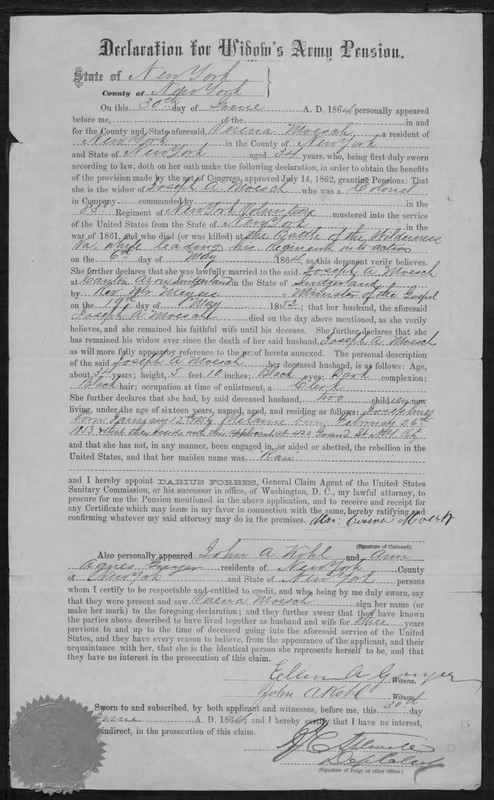 Declaration for Widow's Army Pension.
State of New York
County of New York
On this 30th day of June A. D. 1864 personally appeared
before me, of the in and
for the County and State aforesaid, Verena Moesch, a resident of
New York in the County of New York
and State of New York aged 34 years, who, being first duly sworn
according to law, doth on her oath make the following declaration, in order to obtain the benefits
of the provision made by the act of Congress, approved July 14, 1862, granting Pensions: That
she is the widow of Joseph A. Moesch who was a Colonel
in Company commanded by in the
83 Regiment of New York Volunteers mustered into the service
of the United States from the State of New York in the
war of 1861, and who died (or was killed) at the Battle of the Wilderness
Va. while leading his Regiment into action
on the 6th day of May 1864, as this deponent verily believes.
She further declares that she was lawfully married to the said Joseph A. Moesch
at Canton in Switzerland
by Rev. Mr Minister of the Gospel
on the day of May 1852; that her husband, the aforesaid
Joseph A. Moesch died on the day above mentioned, as she verily
believes, and she remained his faithful wife until his decease. She further declares that she
has remained his widow ever since the death of her said husband, Joseph A. Moesch
as will more fully appear by reference to the proof hereto annexed. The personal description
of the said Joseph A. Moesch her deceased husband, is as follows: Age,
about years; height, 5 feet 10 inches; Black eyes; Dark complexion;
Black hair; occupation at time of enlistment, a Clerk
She further declares that she had, by said deceased husband, two children now
living, under the age of sixteen years, named, aged, and residing as follows: Josephine
born January 12 Melanie born February 26th
1853 & that they reside with this applicant at Grand St. N.Y. City
and that she has not, in any manner, been engaged in, or aided or abetted, the rebellion in the
United States, and that her maiden name was
and I hereby appoint DARIUS FORBES, General Claim Agent of the United States
Sanitary Commission, or his successor in office, of Washington, D. C., my lawful attorney, to
procure for me the Pension mentioned in the above application, and to receive and receipt for
any Certificate which may issue in my favor in connection with the same, hereby ratifying and
confirming whatever my said attorney may do in the premises.
(Signature of Claimant)
Also personally appeared John A. Kohl and Ann
Agnes residents of New York County
of New York and State of New York persons
whom I certify to be respectable and entitled to credit, and who being by me duly sworn, say
that they were present and saw Verena Moesch sign her name (or
make her mark) to the foregoing declaration; and they further swear that they have known
the parties above described to have lived together as husband and wife for three years
previous to and up to the time of deceased going into the aforesaid service of the United
States, and they have every reason to believe, from the appearance of the applicant, and their
acquaintance with her, that she is the identical person she represents herself to be, and that
they have no interest in the prosecution of this claim.
Ellen A. Witness,
John A Kohl Witness
Sworn to and subscribed, by both applicant and witnesses, before me, this 30th day
June A. D. 1864, and I hereby certify that I have no interest,
indirect, in the prosecution of this claim.
(Signature of Judge or other officer.)